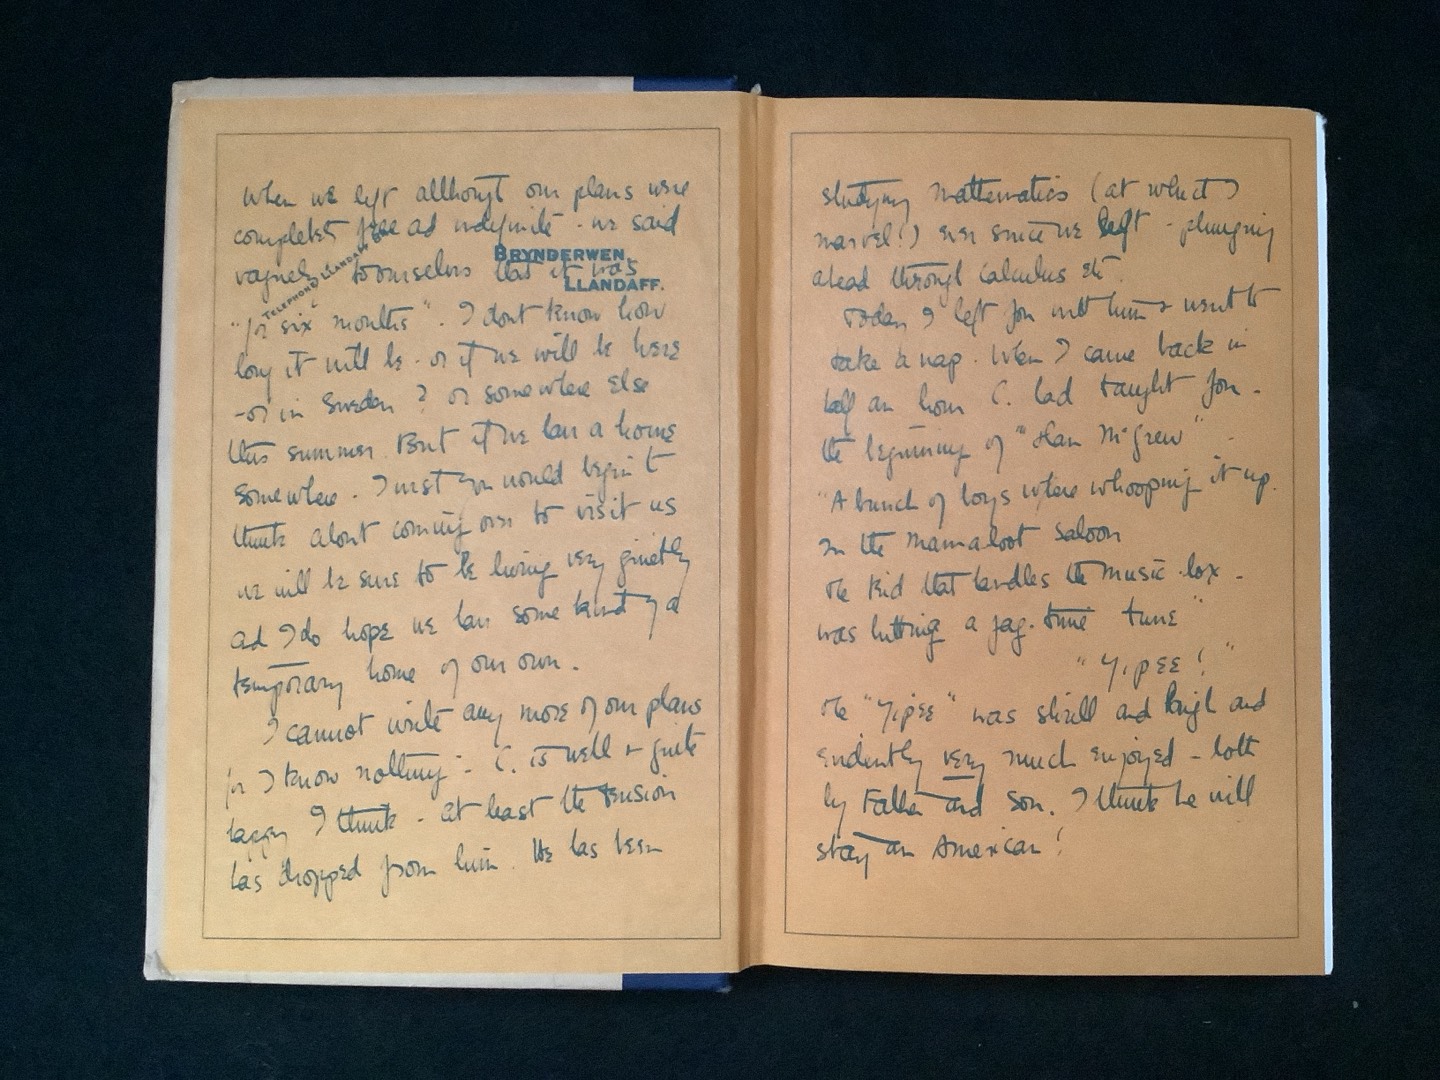 When we left although our plans were
completely free and indefinite - we said
BRYNDERWEN,
vaguely to ourselves that it was
LLANDAFF.
TELEPHONE LLANDAFF
"for six months". I dont know how
long it will be - or if we will be here
- or in Sweden? or somewhere else
this summer. But if we have a home
somewhere - I wish you would begin to
think about coming over to visit us
we will be sure to be living very quietly
and I do hope we have some kind of a
temporary home of our own.
I cannot write any more of our plans
for I know nothing - C. is well + quite
happy I think - at least the tension
has dropped from him. He has been
studying mathematics (at which I
marvel!) ever since we left - plunging
ahead through Calculus etc.
Today I left Jon with him + went to
take a nap. When I came back in
half an hour C. had taught Jon -
the beginning of "Dan McGrew" -
"A bunch of boys where whooping it up.
In the Mamaloot saloon
The Kid that handles the music-box -
was hitting a jag-time tune"
"Yipee!"
The "Yipee" was shrill and high and
evidently very much enjoyed - both
by Father and son. I think he will
stay an American!